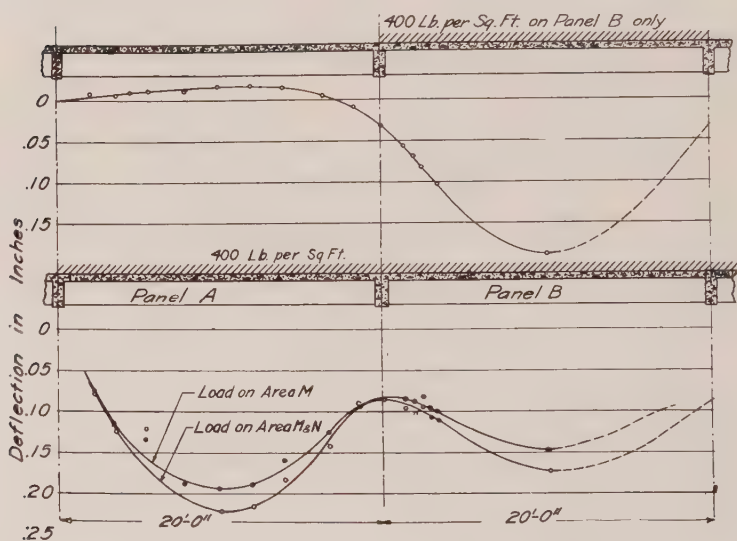 400 Lb. per Sq. Ft. on Panel B only
0
.05
.10
.15
400 Lb. per Sq Ft.
Panel A
Panel B
Deflection in Inches
0
.05
.10
.15
.20
.25
Load on Area M
Load on Area M&N
20'-0"
20'-0"